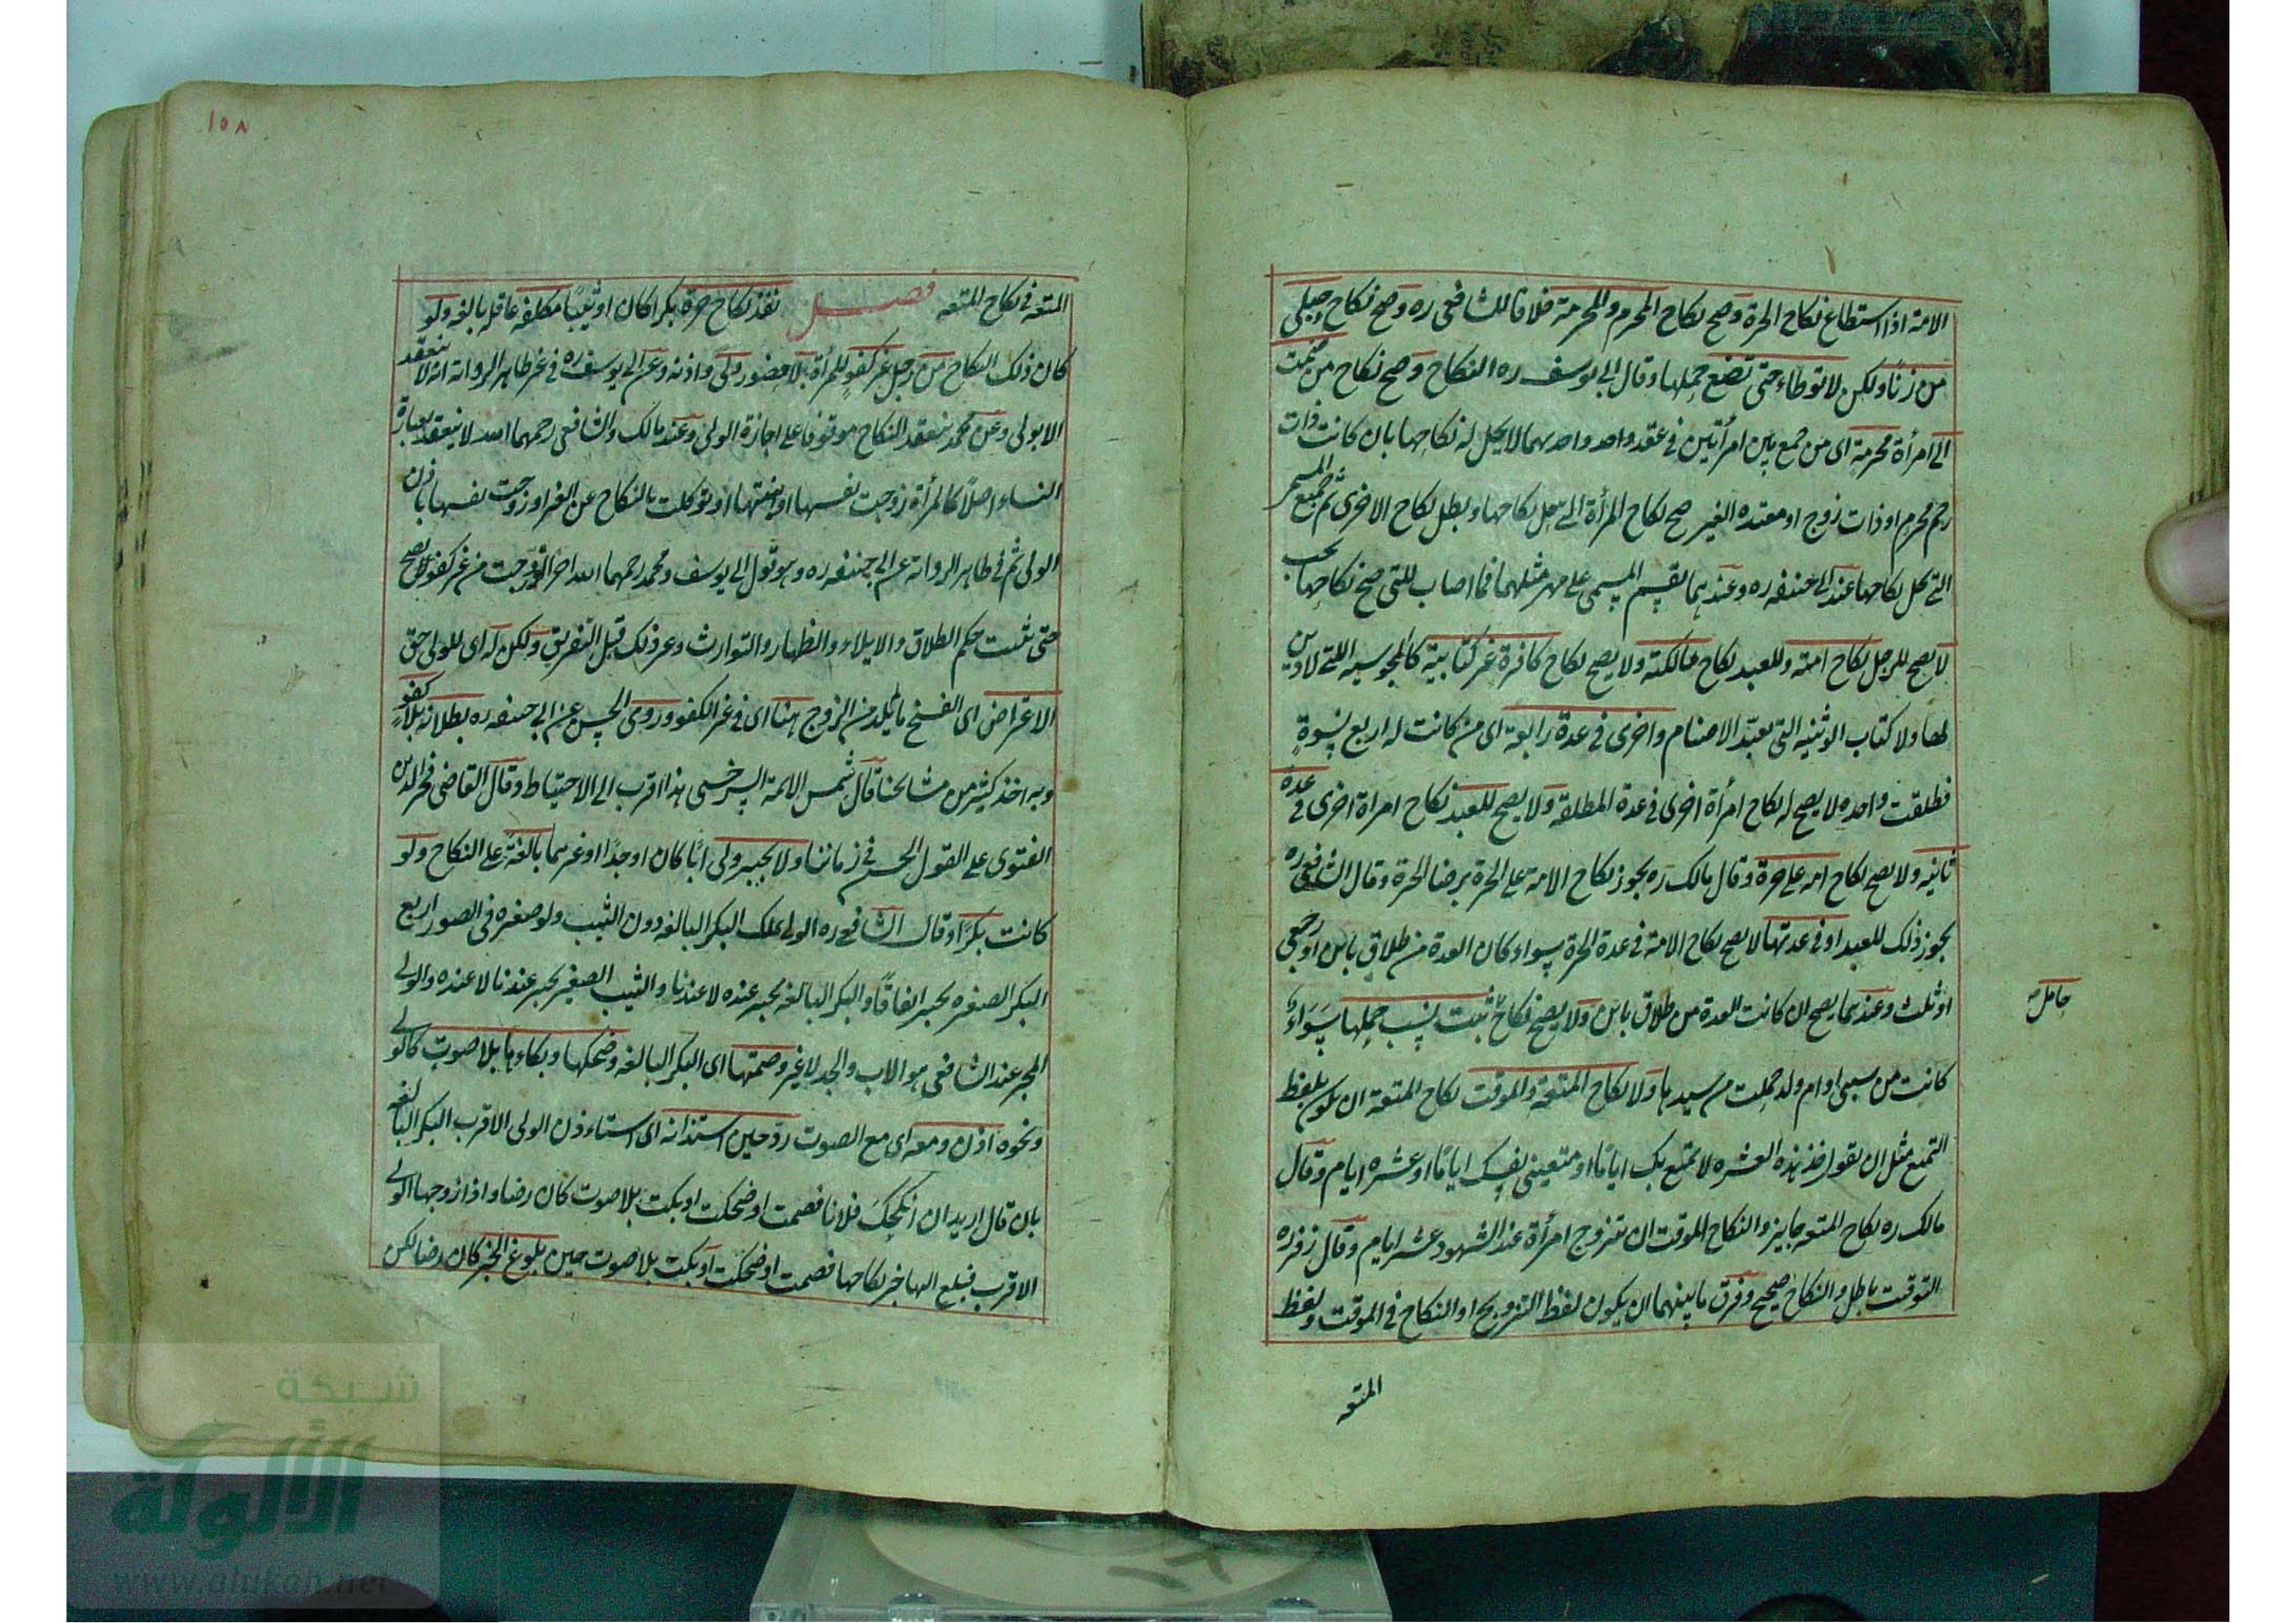 الامة اذا استطاع نكاح الحرة وصح نكاح المحرم والمحرمة خلافا للشافعى ره وصح نكاح حبلى
من زنًا ولكن لا توطاء حتى تضع حملها وقال ابى يوسف ره النكاح وصح نكاح من ضمت
الى امرأة محرمة اى من جمع بين امرأتين فى عقد واحد واحديهما لا يحل له نكاحها بان كانت ذات
رحم محرم او ذات زوج او معتدة الغير صح نكاح المرأة التى يحل نكاحها وبطل نكاح الاخرى ثم جميع المسمى
التى يحل نكاحها عند ابى حنيفه ره وعندهما يقسم المسمى على مهر مثلهما فما اصاب للتى صح نكاحها يجب
لا يصح للرجل نكاح امته وللعبد نكاح مالكته ولا يصح نكاح كافرة غير كتابية كالمجوسيه اللتى لا دين
لها ولا كتاب الوثنيه التى تعبد الاصنام واخرى فى عدة رابعة اى من كانت له اربع نسوةٍ
فطلقت واحده لا يصح له نكاح امرأة اخرى فى عدة المطلقة ولا يصح للعبد نكاح امراة اخرى فى عدة
ثانيه ولا يصح نكاح امه على حرة وقال مالك ره يجوز نكاح الامة على الحرة برضا الحرة وقال الشافعى ره
يجوز ذلك للعبد او فى عدتها لا يصح نكاح الامة فى عدة الحرة سواء كان العدة من طلاق باين او رجعى
او ثلث وعندهما يصح ان كانت العدة من طلاق باين ولا يصح نكاح ثبت نسب حملها سَوَاءٌ
حامل
كانت من سبى او ام ولد حملت من سيدها ولا نكاح المتعة والموقت نكاح المتعة ان يكون بلفظ
التمتع مثل ان يقول خذ هذه العشره لا تمتع بك ايامًا او متعينى نفسك ايامًا او عشره ايام وقال
مالك ره نكاح المتعه جايز والنكاح الموقت ان يتزوج امرأة عند الشهود عشر ايام وقال زفر ره
التوقت باطل والنكاح صحيح وفرق ما بينهما ان يكون لفظ التزويج او النكاح فى الموقت ولفظ
المتعه
١٥٨
المتعه فى نكاح المتعه فصل نفذ نكاح حرة بكرا كان او ثيبًا مكلفه عاقله بالغه ولو
كان ذلك النكاح من رجل غير كفو للمرأة بلا حضور ولى واذنه وعن ابى يوسف ره فى غير ظاهر الروايه انه لا ينعقد
الا بولى وعن محمد ينعقد النكاح موقوفا على اجازة الولى وعند مالك والشافعى رحمهما الله لا ينعقد بعبارة
النساء اصلاً كالمرأة زوجت نفسها او بنتها او توكلت بالنكاح عن الغير او زوجت نفسها باذن
الولى ثم فى ظاهر الروايه عن ابى حنيفه ره وهو قول ابى يوسف ومحمد رحمهما الله اخرا لو زوجت من غير كفو يصح
حتى يثبت حكم الطلاق والايلاء والظهار والتوارث وغير ذلك قبل التفريق ولكن له اى للولى حق
الاعتراض اى الفسخ ما لم تلد من الزوج هنا اى فى غير الكفو وروى الحسن عن ابى حنيفه ره بطلانه بلا كفوٍ
وبه اخذ كثير من مشائخنا قال شمس الائمة السرخسى هذا اقرب الى الاحتياط وقال القاضى فخر الدين
الفتوى على القول الحسن فى زماننا ولا يجبر ولى ابًا كان او جدًا او غيرهما بالغةً على النكاح ولو
كانت بكرًا وقال الشافعى ره الولى يملك البكر البالغه دون الثيب ولو صغيره فى الصور اربع
البكر الصغيره يجبر اتفاقًا والبكر البالغه يجبر عنده لا عندنا والثيب الصغير يجبر عندنا لا عنده والولى
المجبر عند الشافعى هو الاب والجد لا غير وصمتها اى البكر البالغه وضحكها وبكاوها بلا صوت
ونحوه اذن ومعه اى مع الصوت ردّ حين استئذانه اى استاءذن الولى الاقرب البكر البالغه
بان قال اريد ان انكحكَ فلانا فصمت او ضحكت او بكت بلا صوت كان رضا واذا زوجها الولى
الاقرب فبلغ اليها خبر نكاحها فصمت او ضحكت او بكت بلا صوت حين بلوغ الخبر كان رضا لكن
شبكة
الألوكة
www.alukah.net